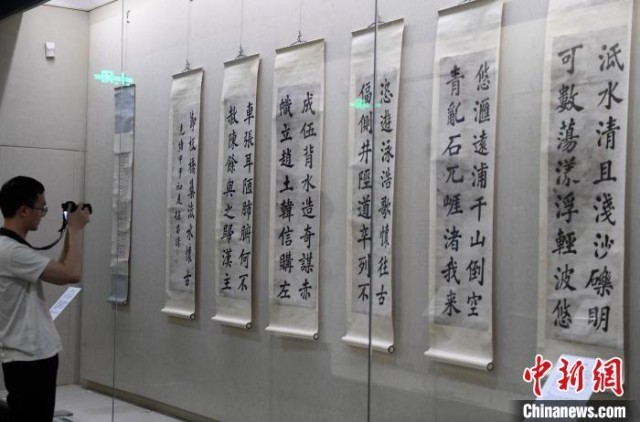 泜水清且淺沙礫明
可數蕩漾浮輕波悠
悠滙遠浦千山倒空
青亂石兀崕渚我來
恣遊泳浩歌懷往古
偪側井陘道卒列不
成伍背水造奇謀赤
幟立趙土韓信購左
車張耳陋肺腑何不
赦陳餘與之歸漢主
鄭板橋集泜水懷古
光緒甲申
中新网
Chinanews.com